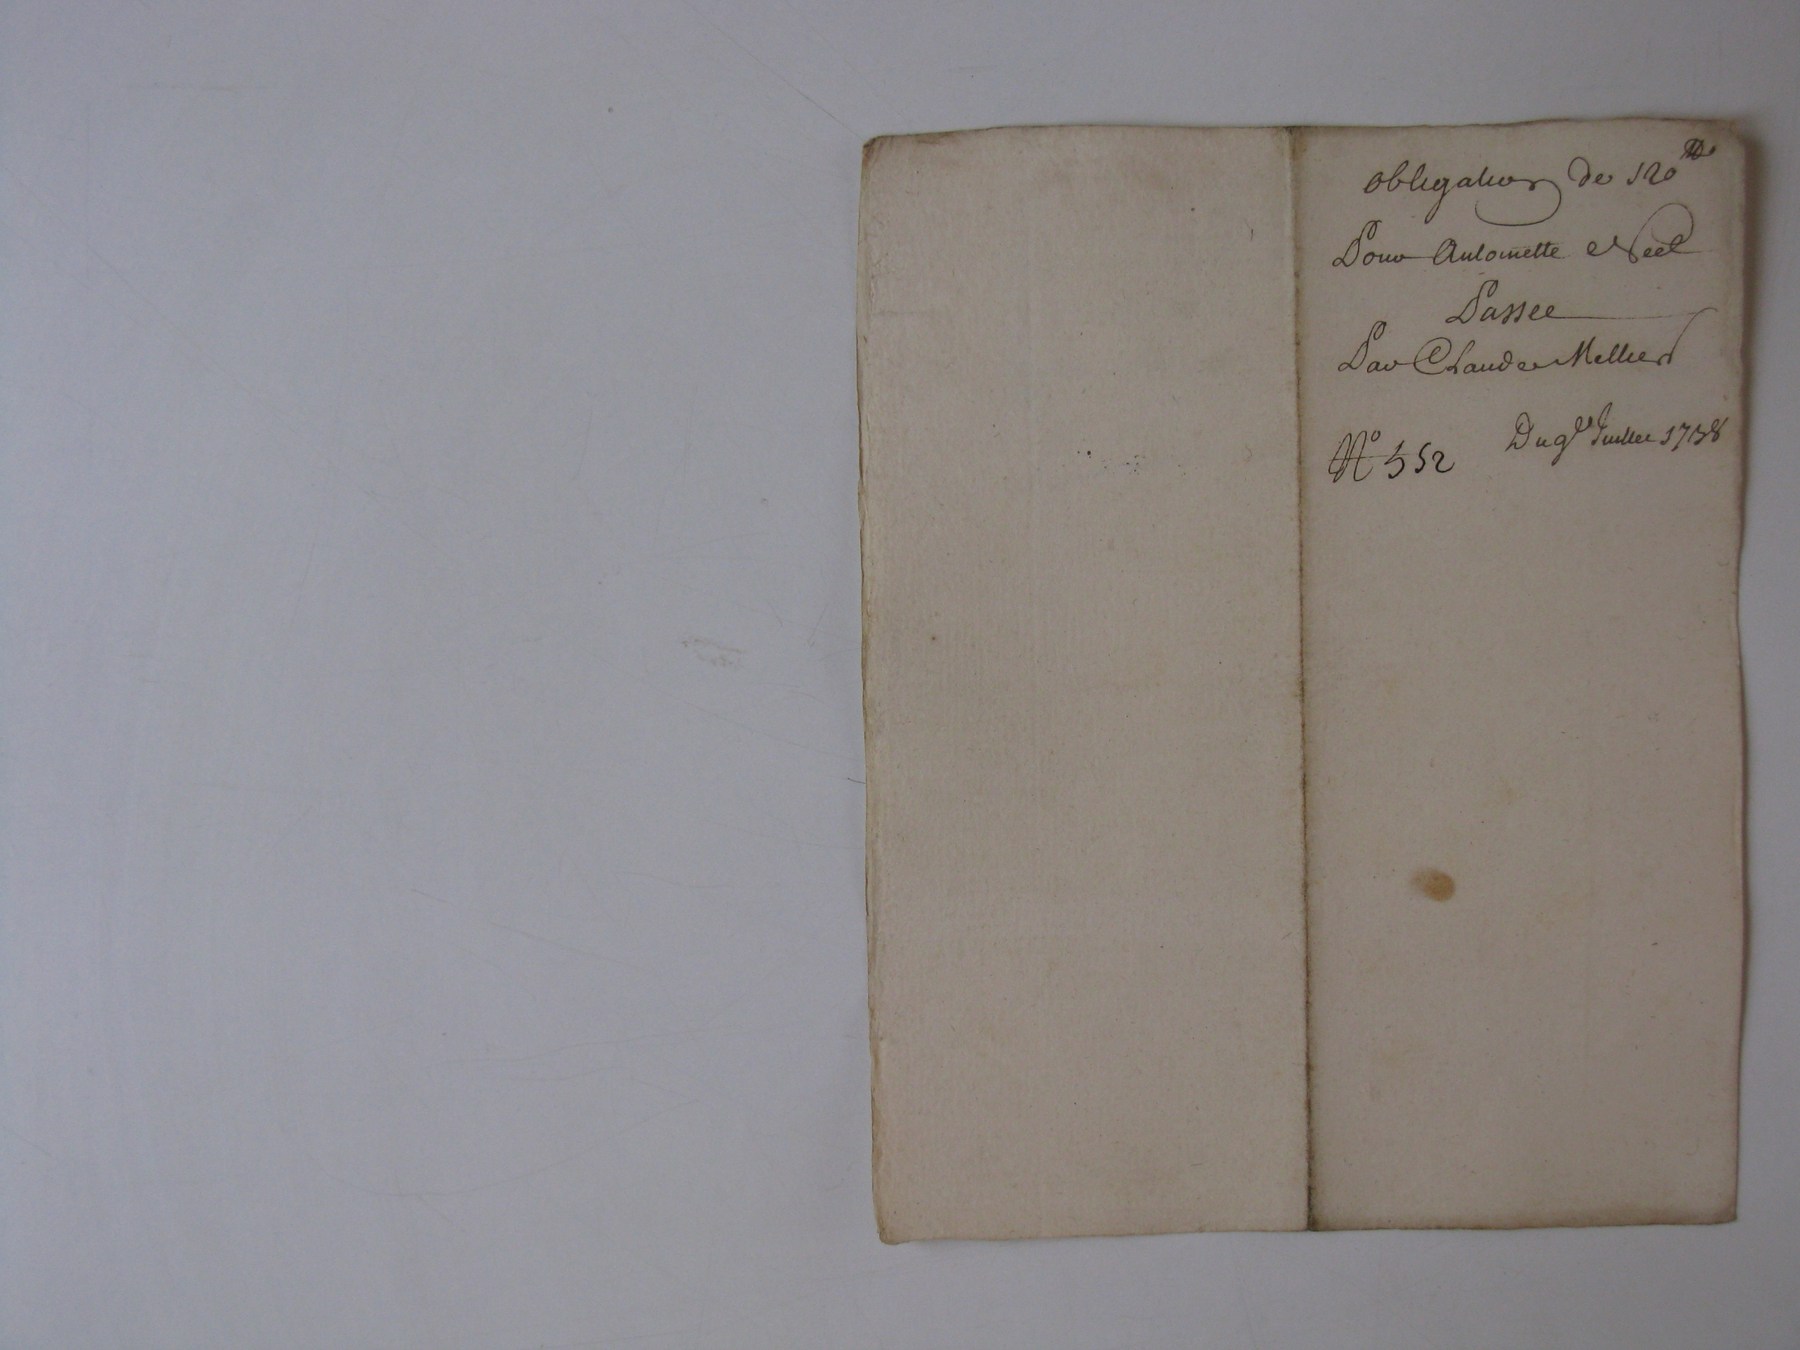 obligation de 120#
Pour Antoinette Neel
Passee
Par Claude Mellier
Du 9e Juillet 1738
No 552